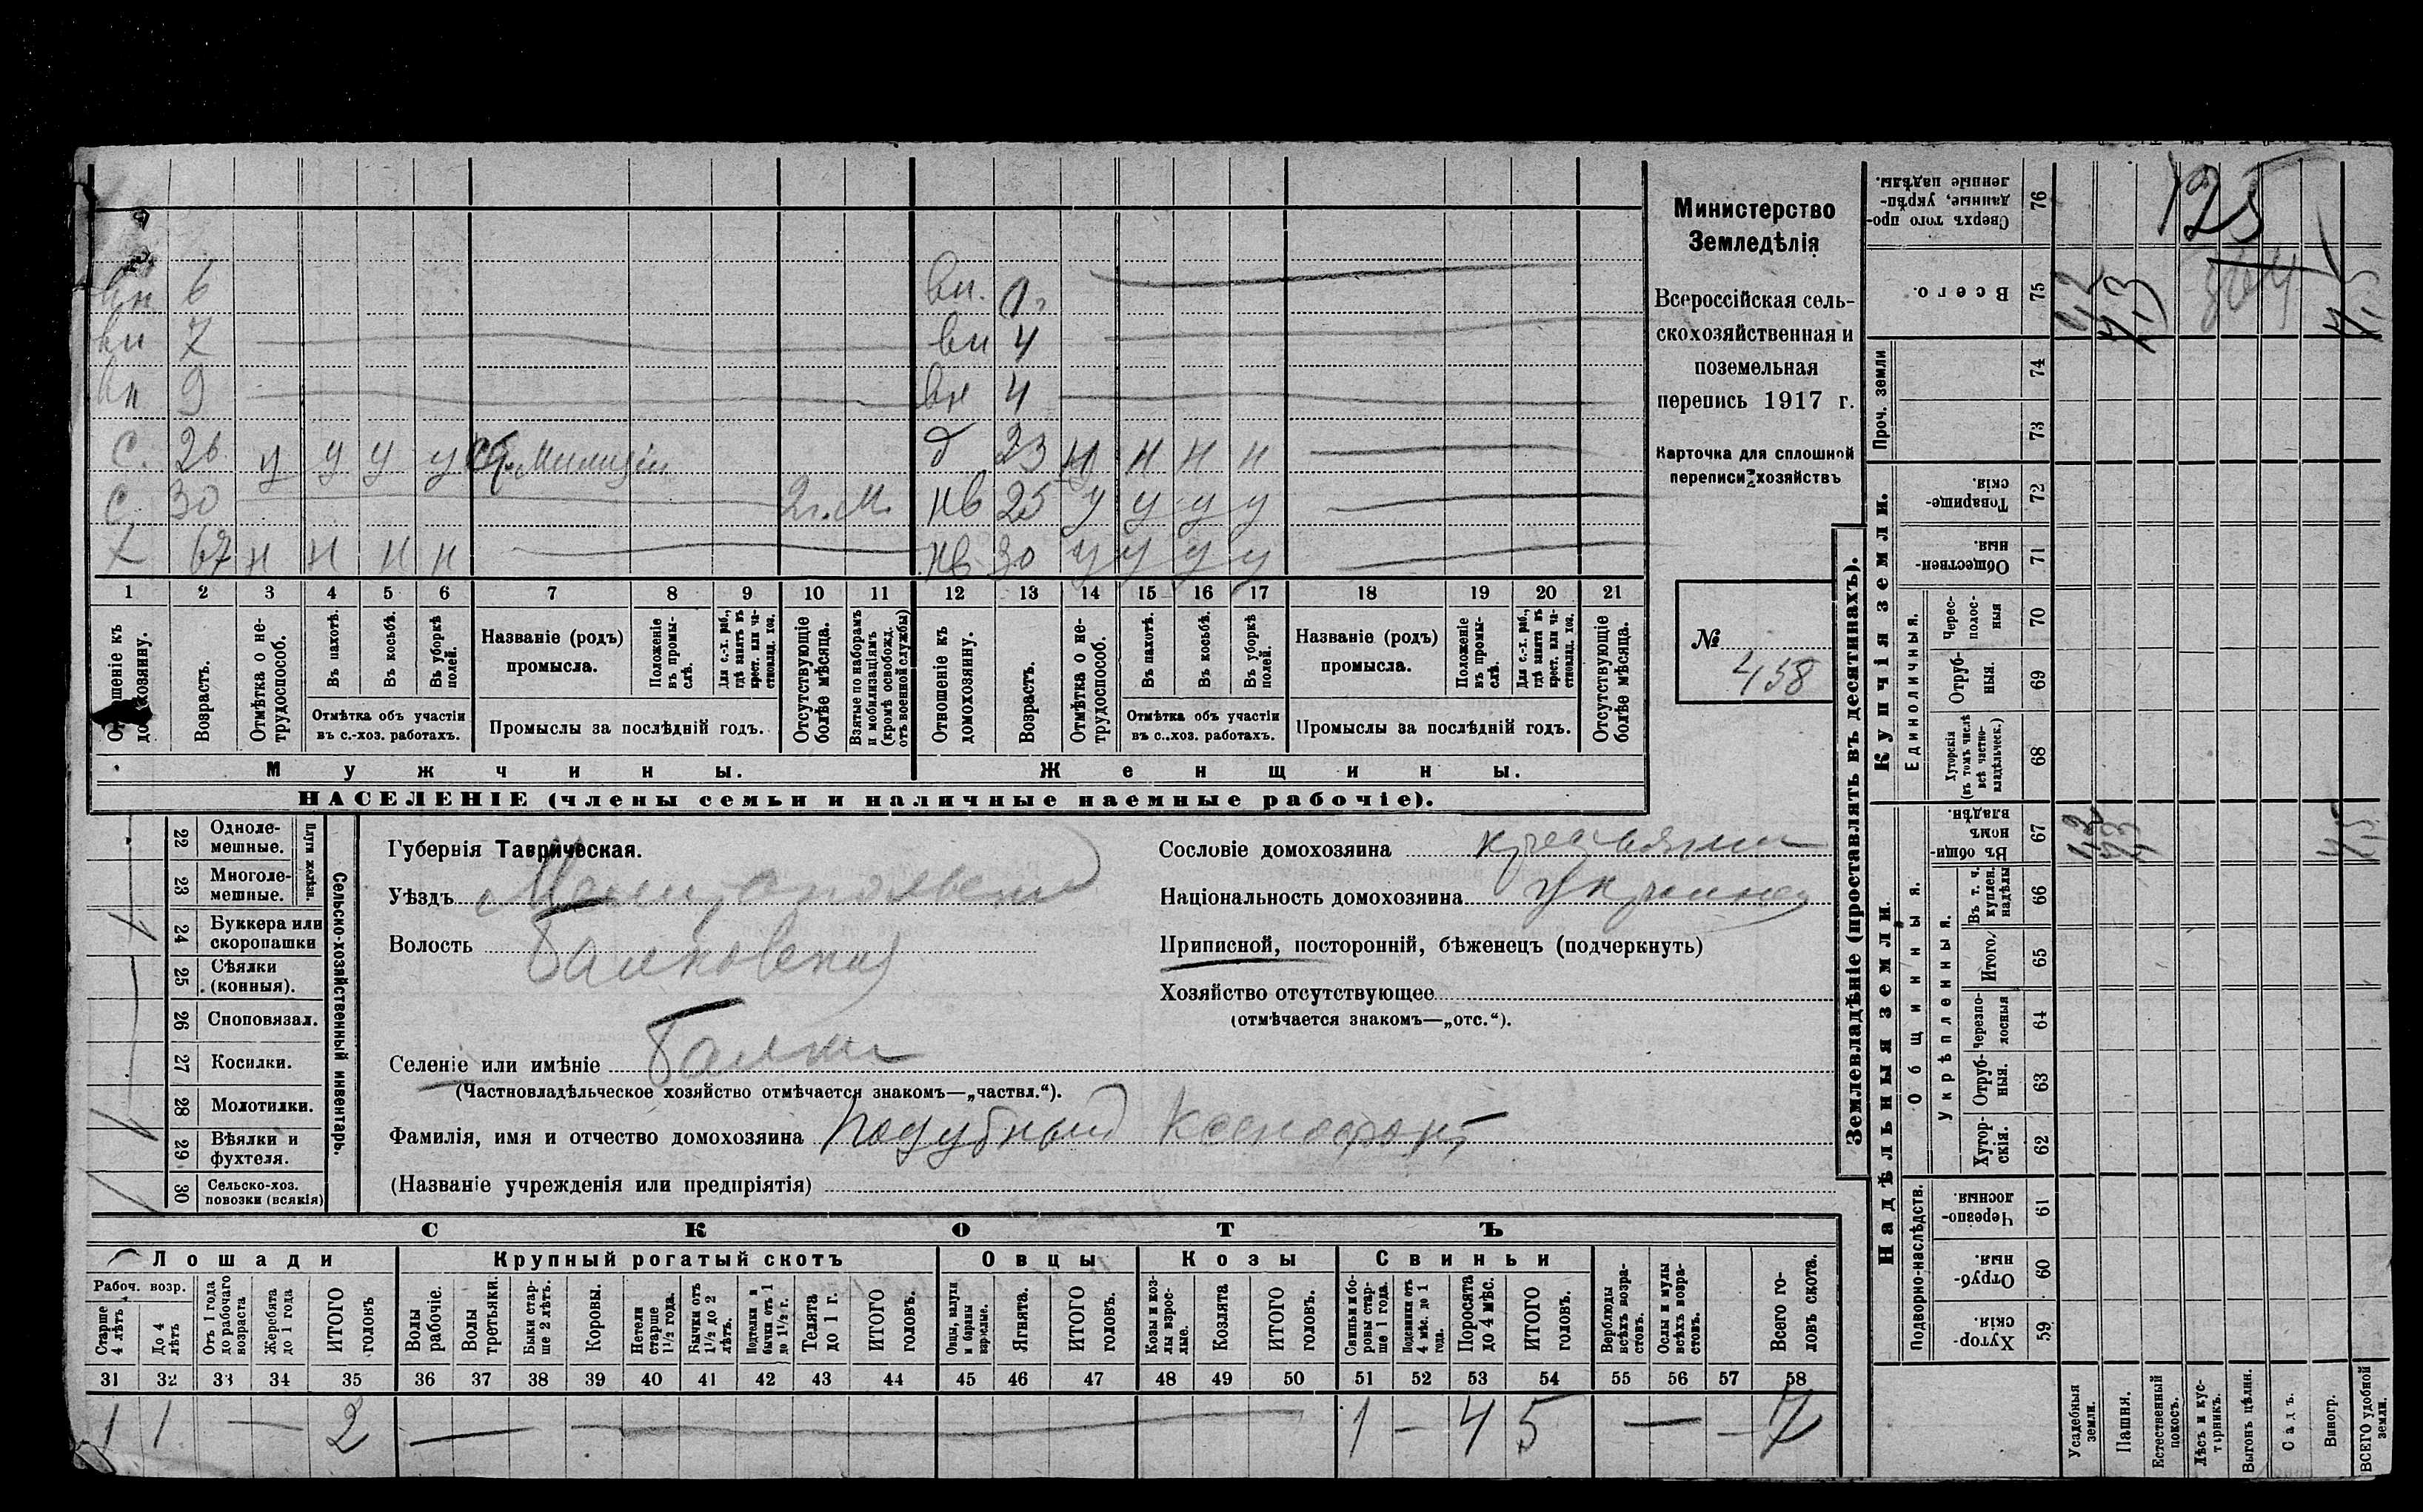 вн 6 вн. 1г
вн 7 вн 4
вн 9 вн 4
С. 26 у у у у Милиціи д 23 н н н н
С. 30 2г. М. нв 25 у у у у
Х 67 н н н н нв 30 у у у у
1 2 3 4 5 6 7 8 9 10 11 12 13 14 15 16 17 18 19 20 21
Отношеніе къ домохозяину.
Возрастъ.
Отмѣтка о не-трудоспособ.
Въ пахотѣ.
Въ косьбѣ.
Въ уборкѣ полей.
Отмѣтка объ участіи
въ с.-хоз. работахъ.
Названіе (родъ)
промысла.
Положеніе въ промы-слѣ.
Для с.-х. раб., гдѣ занятъ въ крест. или ча-стновлад. хоз.
Промыслы за послѣдній годъ.
Отсутствующіе болѣе мѣсяца.
Взятые по наборамъ и мобилизаціямъ (кромѣ освобожд. отъ военной службы)
Отношеніе къ домохозяину.
Возрастъ.
Отмѣтка о не-трудоспособ.
Въ пахотѣ.
Въ косьбѣ.
Въ уборкѣ полей.
Отмѣтка объ участіи
въ с.-хоз. работахъ.
Названіе (родъ)
промысла.
Положеніе въ промы-слѣ.
Для с.-х. раб., гдѣ занята въ крест. или ча-стновлад. хоз.
Промыслы за послѣдній годъ.
Отсутствующіе болѣе мѣсяца.
Мужчины. Женщины.
НАСЕЛЕНІЕ (члены семьи и наличные наемные рабочіе).
Министерство
Земледѣлія
Всероссійская сель-
скохозяйственная и
поземельная
перепись 1917 г.
Карточка для сплошной
переписи хозяйствъ
№
458
22 Одноле-мешные.
23 Многоле-мешные.
Плуги желѣзн.
24 Буккера или скоропашки
25 Сѣялки (конныя).
26 Сноповязал.
27 Косилки.
28 Молотилки.
29 Вѣялки и фухтеля.
30 Сельско-хоз. повозки (всякія)
Сельско-хозяйственный инвентарь.
Губернія Таврическая.
Уѣздъ Мелитопольскій
Волость Балковская
Селеніе или имѣніе Балки
(Частновладѣльческое хозяйство отмѣчается знакомъ—„частвл.“).
Фамилія, имя и отчество домохозяина Подубный Ксенофонт
(Названіе учрежденія или предпріятія)
Сословіе домохозяина крестьянин
Національность домохозяина Украинец
Приписной, посторонній, бѣженецъ (подчеркнуть)
Хозяйство отсутствующее
(отмѣчается знакомъ—„отс.“).
СКОТЪ
Лошади Крупный рогатый скотъ Овцы Козы Свиньи
Рабоч. возр.
Старше 4 лѣтъ
До 4 лѣтъ
Отъ 1 года до рабочаго возраста
Жеребята до 1 года
ИТОГО головъ
Волы рабочіе.
Волы третьяки.
Быки стар-ше 2 лѣтъ.
Коровы.
Нетели старше 1½ года.
Бычки отъ 1½ до 2 лѣтъ.
Подтелки и бычки отъ 1 до 1½ г.
Телята до 1 г.
ИТОГО головъ.
Овцы, валухи и бараны взрослые.
Ягнята.
ИТОГО головъ.
Козы и коз-лы взрос-лые.
Козлята
ИТОГО головъ.
Свиньи и бо-ровы стар-ше 1 года.
Подсвинки отъ 4 мѣс. до 1 года.
Поросята до 4 мѣс.
ИТОГО головъ.
Верблюды всѣхъ возра-стовъ.
Ослы и мулы всѣхъ возра-стовъ.
Всего го-ловъ скота.
31 32 33 34 35 36 37 38 39 40 41 42 43 44 45 46 47 48 49 50 51 52 53 54 55 56 57 58
1 1 — 2 — — 1 — 4 5 — — 7
Землевладѣніе (проставлять въ десятинахъ).
Надѣльныя земли. Купчія земли.
Проч. земли
Подворно-наслѣдств.
Общинныя.
Укрѣпленныя.
Единоличныя.
Сверхъ того про-данные, укрѣп-ленные надѣлы. 76
Всего. 75
74
73
Товарище-скія. 72
Обществен-ныя. 71
Черес-полос-ныя 70
Отруб-ныя. 69
Хуторскія (въ томъ числѣ всѣ частно-владѣльческ.) 68
Въ общин-номъ владѣн. 67
Въ т. ч. куплен. надѣлы 66
Итого. 65
Черезпо-лосныя 64
Отруб-ныя. 63
Хутор-скія. 62
Черезпо-лосныя. 61
Отруб-ныя. 60
Хутор-скія. 59
125
4,3
4,5
4,3
4,5
Усадебныя земли.
Пашня.
Естественный покосъ.
Лѣсъ и кус-тарникъ.
Выгонъ цѣлин.
Садъ.
Виногр.
ВСЕГО удобной земли.